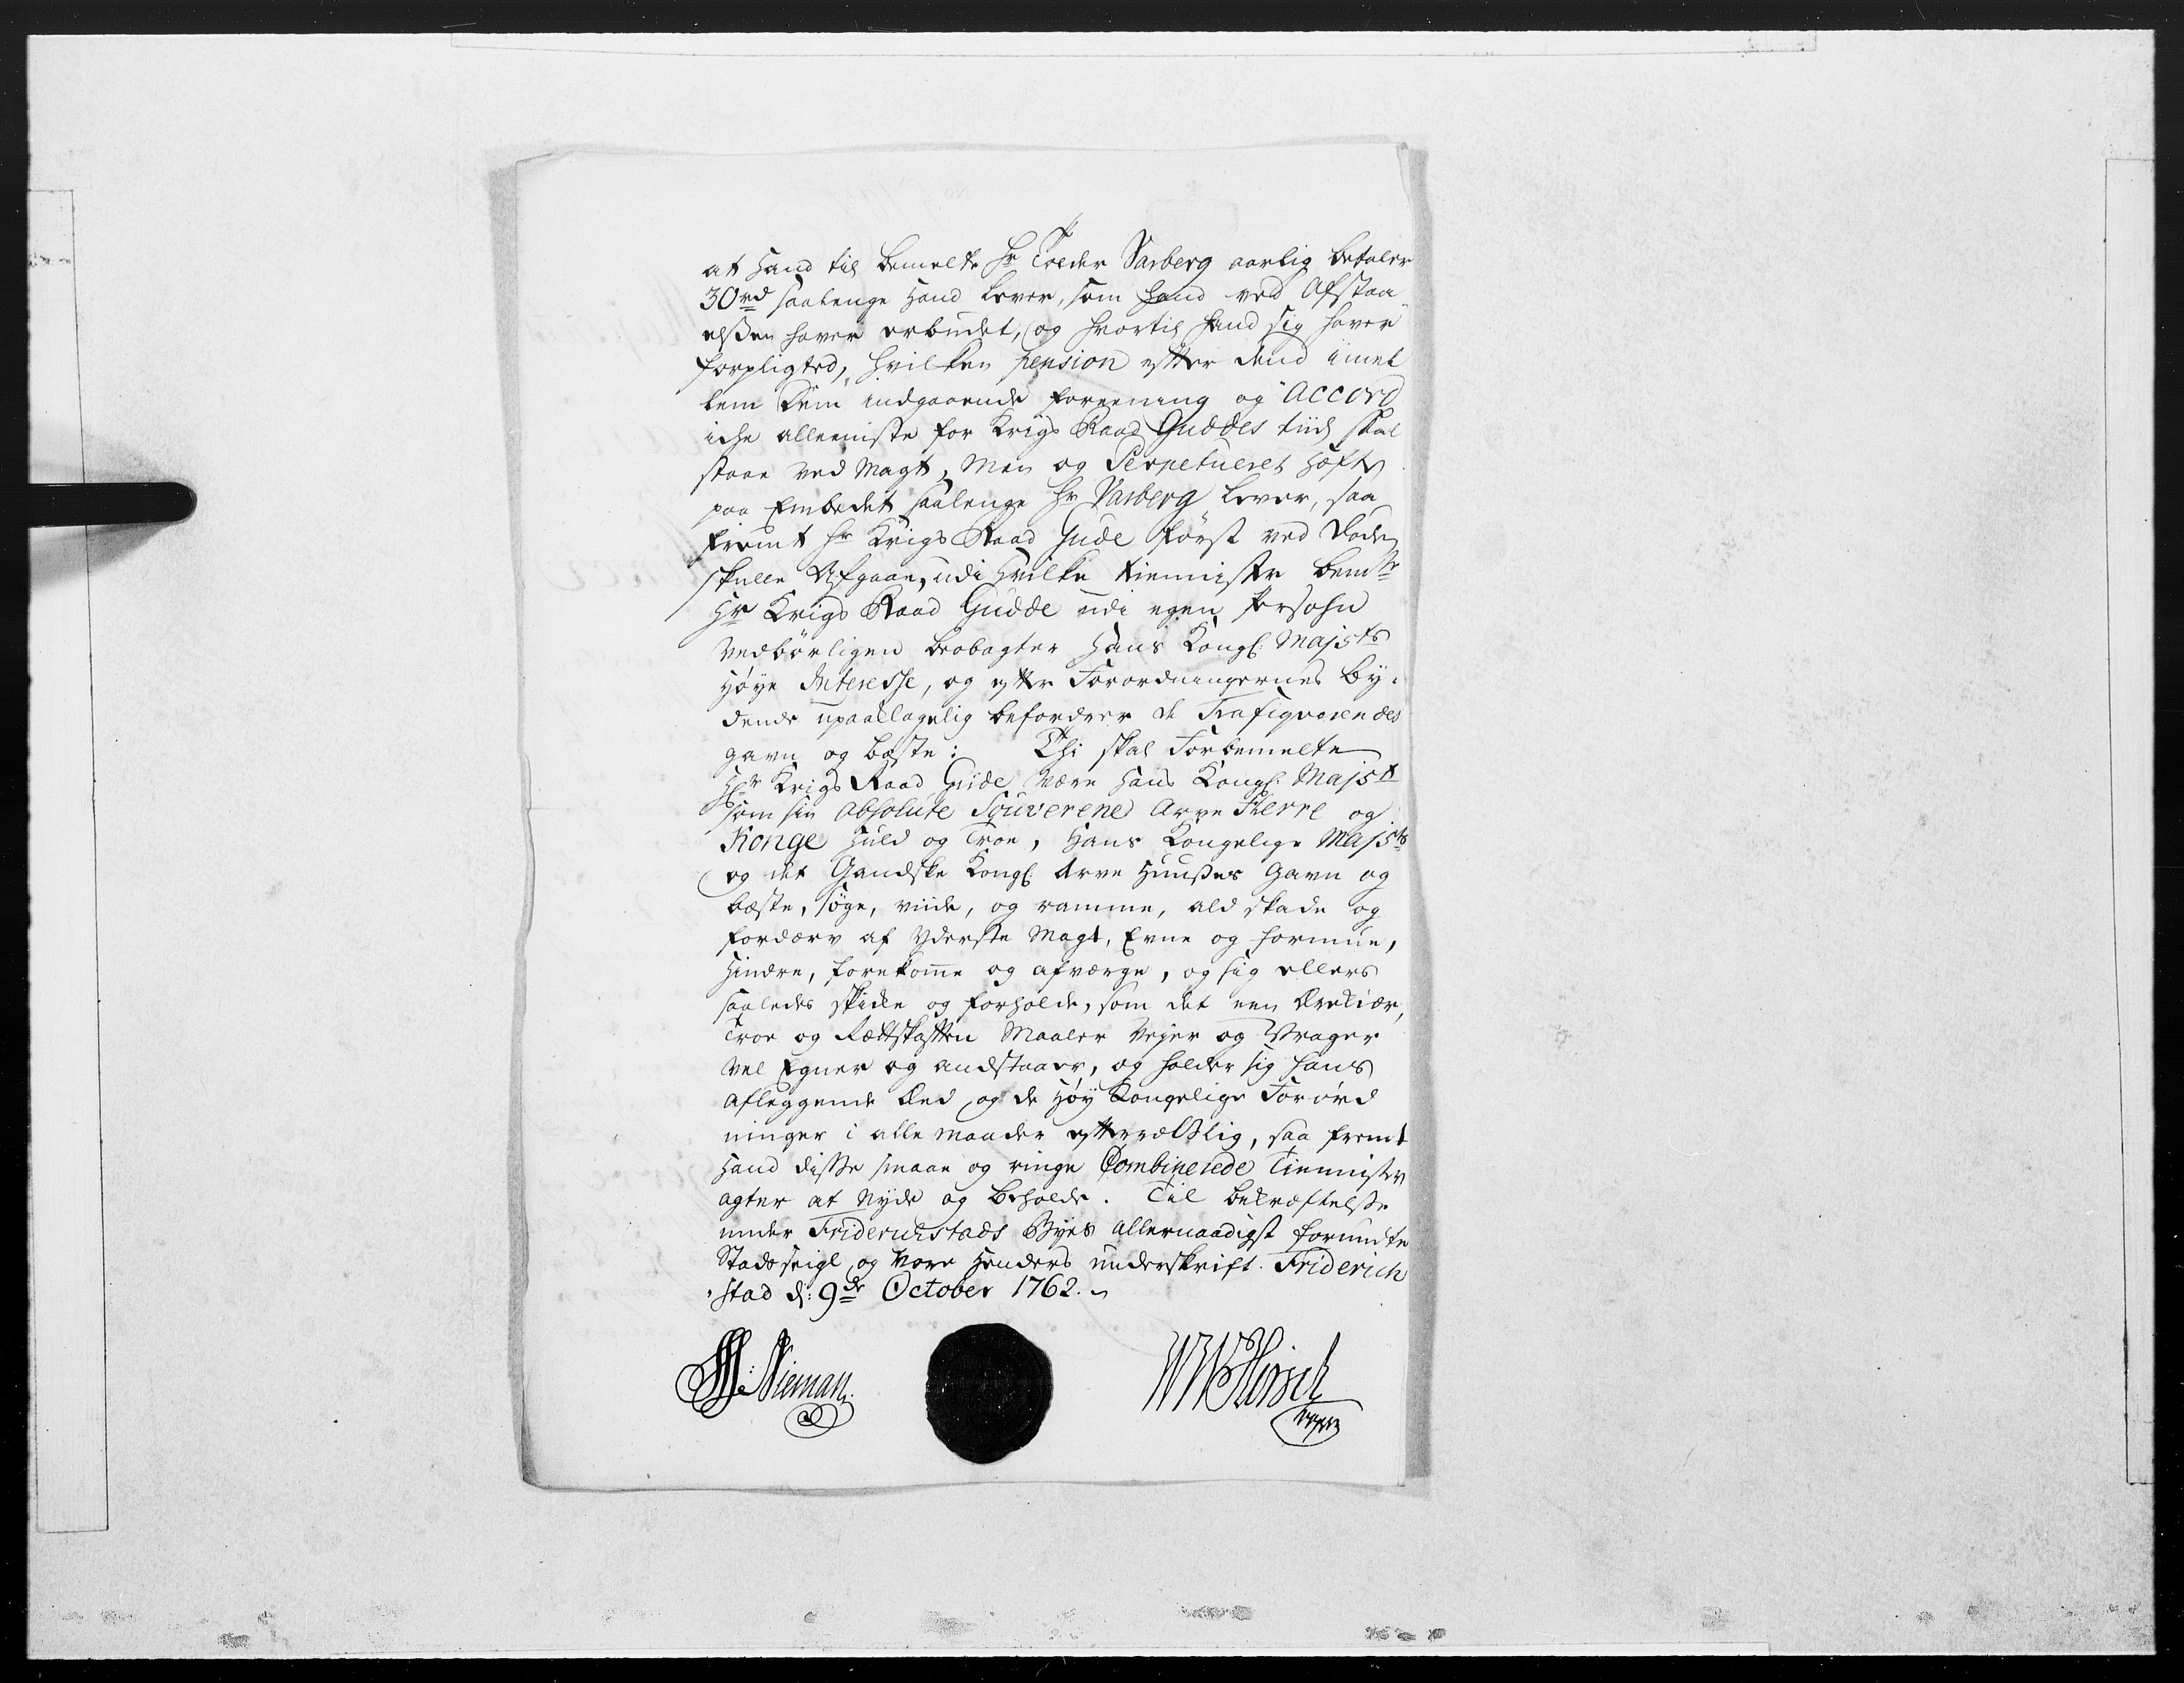 at Hand til bemelte Hr Tolder Varberg aarlig betaler
30rd saalenge Hand lever, som Hand ved Afstaa
elsen haver erbudet, og hvortil Hand sig haver
forpligted, hvilken pension efter dend imel
lem dem indgaaende foreening og Accord
iche alleeniste for Krigs Raad Guddes tiid skal
staae ved Magt, Men og Perpetueret Hæfte
paa Embedet saalenge Hr Varberg lever, saa
fremt Hr Krigs Raad Gude først ved Døden
skulle Afgaae, udi hvilke tiennister bemte
Hr Krigs Raad Gudde udi egen persohn
vedbørligen beobagter Hans Kongl: Majsts
Høye Interesse, og efter Forordningernes by-
dende upaaklagelig befordrer de Trafiqverendes
gavn og beste: Thi skal Forbemelte
Hr Krigs Raad Gude være Hans Kongl: Majst
som sin absolute Souverene Arve Herre og
Konge huld og troe, Hans Kongelige Majsts
og det Gandske Kongl: Arve Huuses Gavn og
beste, søge, viide, og ramme, ald skade og
fordærv af Yderste Magt, Evne og formue,
Hindre, forekome og afværge, og sig ellers
saaledes skicke og forholde, som det een Ærekiær,
Troe og Rettskaffen Maaler Vejer og Vrager
vel Egner og andstaaer, og holder sig hans
aflæggende Eed og de Høy Kongelige Forord
ninger i alle maader efterrettlig, saa fremt
Hand disse smaae og ringe Combinerede Tiennister
agter at nyde og beholde. Til bekræftelse
under Friderichstads Byes allernaadigst forundte
Stads seigl og vore Henders underskrift. Friderich
stad d: 9de October 1762.
Nieman
WWHirsch